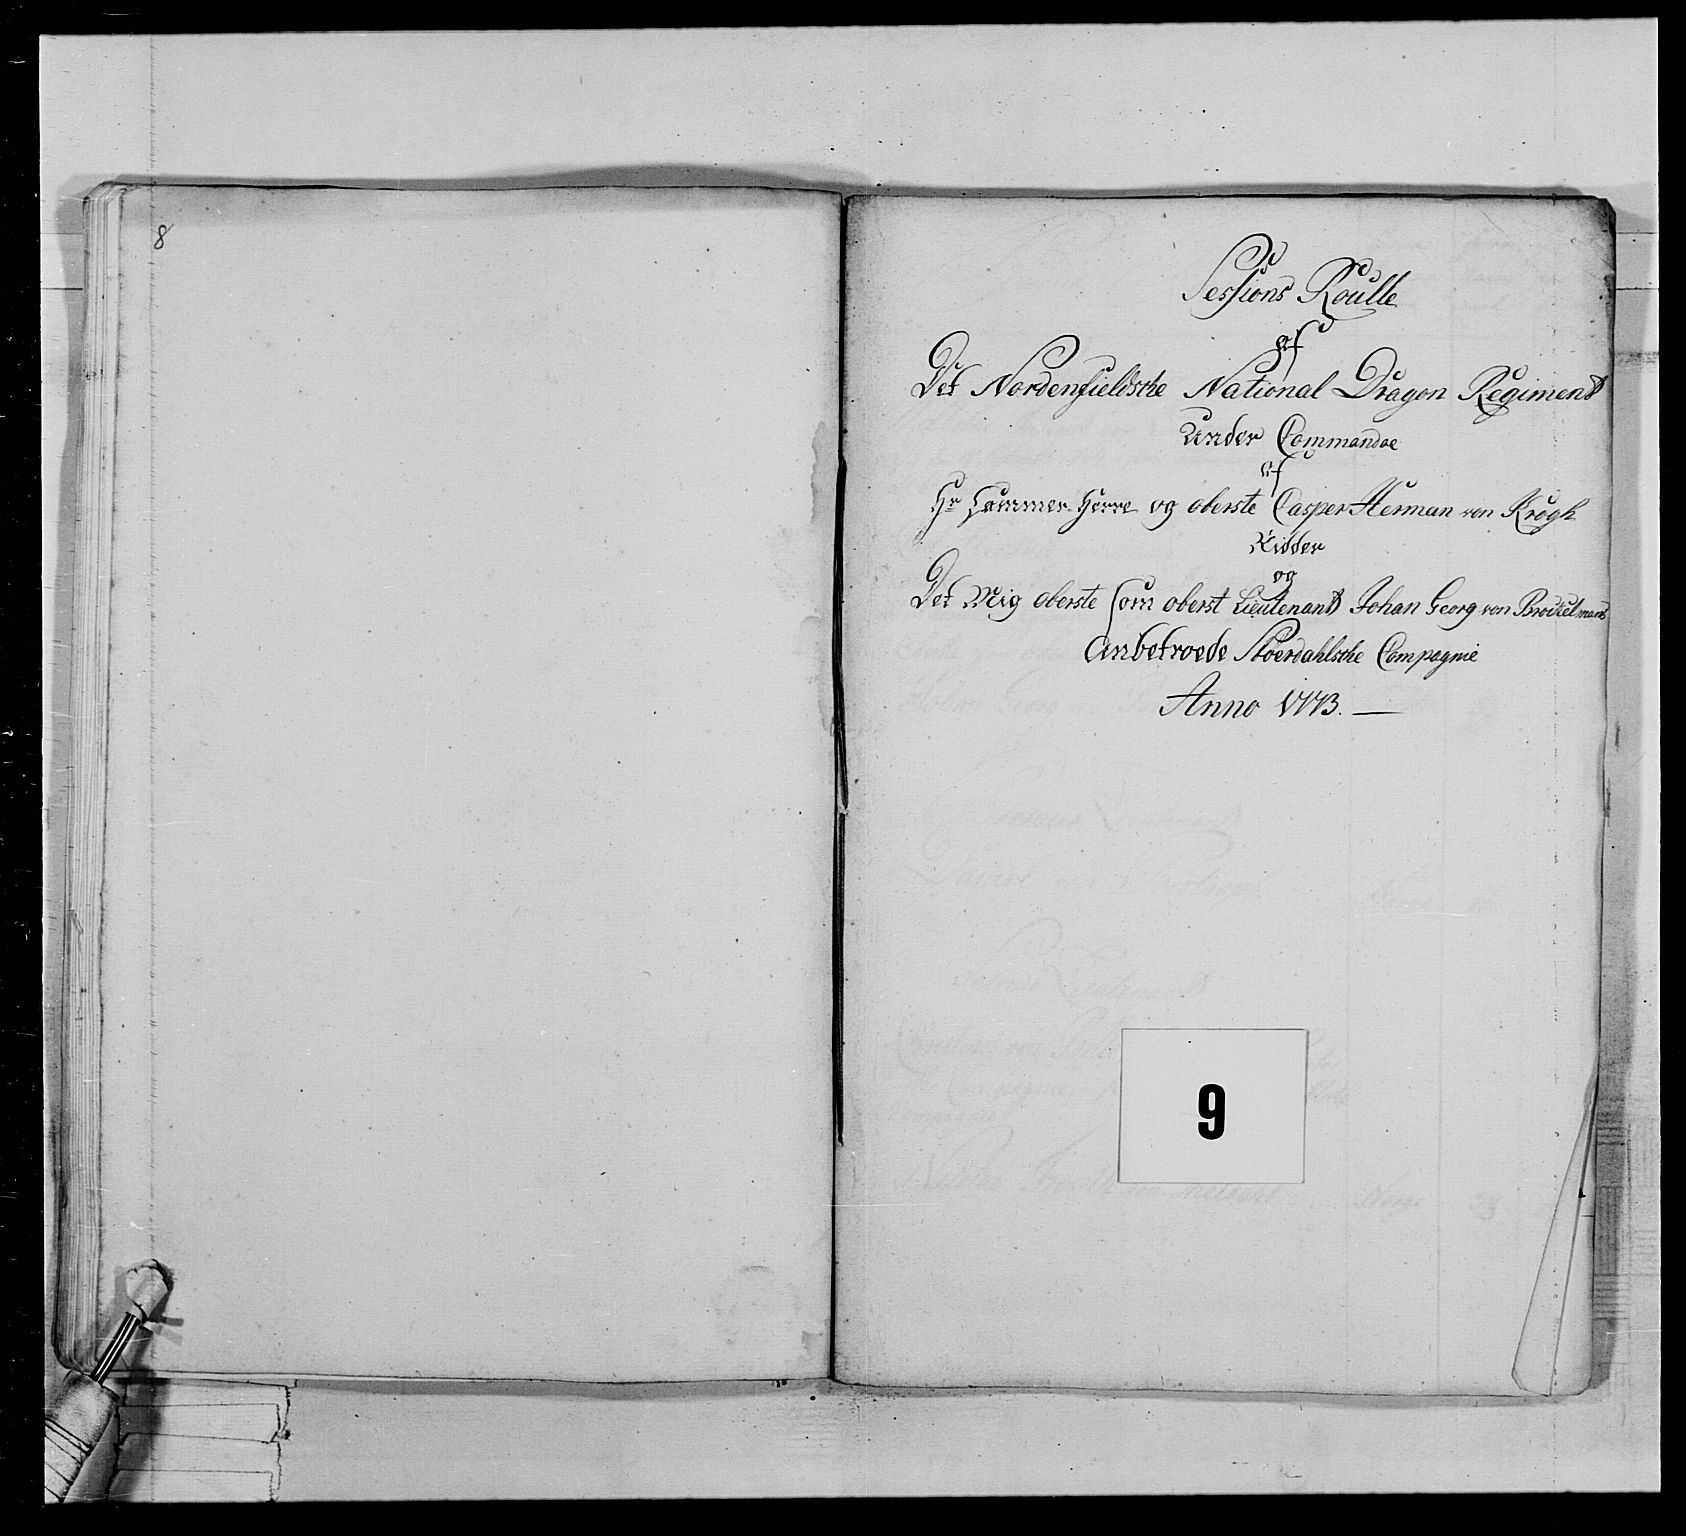 8
Sessions Roulle
af
Det Nordenfieldsche National Dragon Regiment
Under Commandoe
af
Hr Cammer Herre og oberste Casper Herman von Krogh
Ridder
og
Det Mig oberste som oberst Lieutenant Johan Georg von Brockelmann
Anbetroede Støerdahlsche Compagnie
Anno 1773.
9